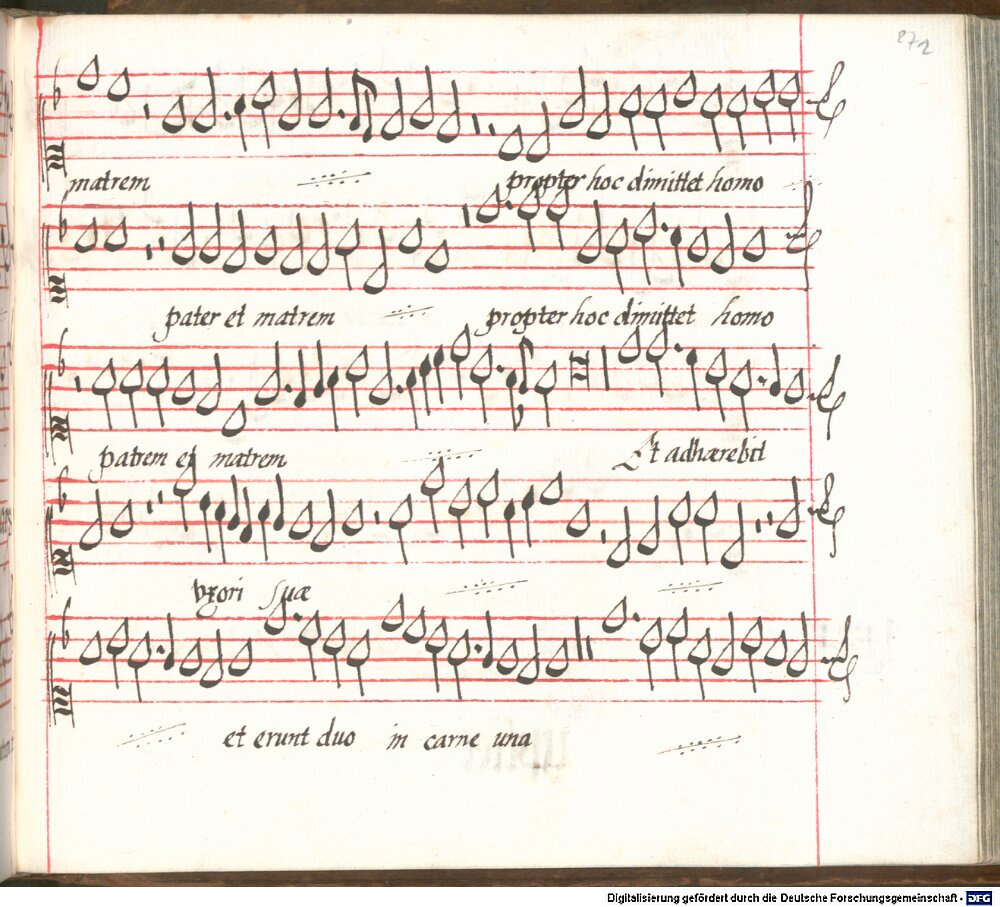 272
matrem propter hoc dimittet homo
pater et matrem propter hoc dimittet homo
patrem et matrem Et adhærebit
vxori suæ
et erunt duo in carne una
Digitalisierung gefördert durch die Deutsche Forschungsgemeinschaft - DFG